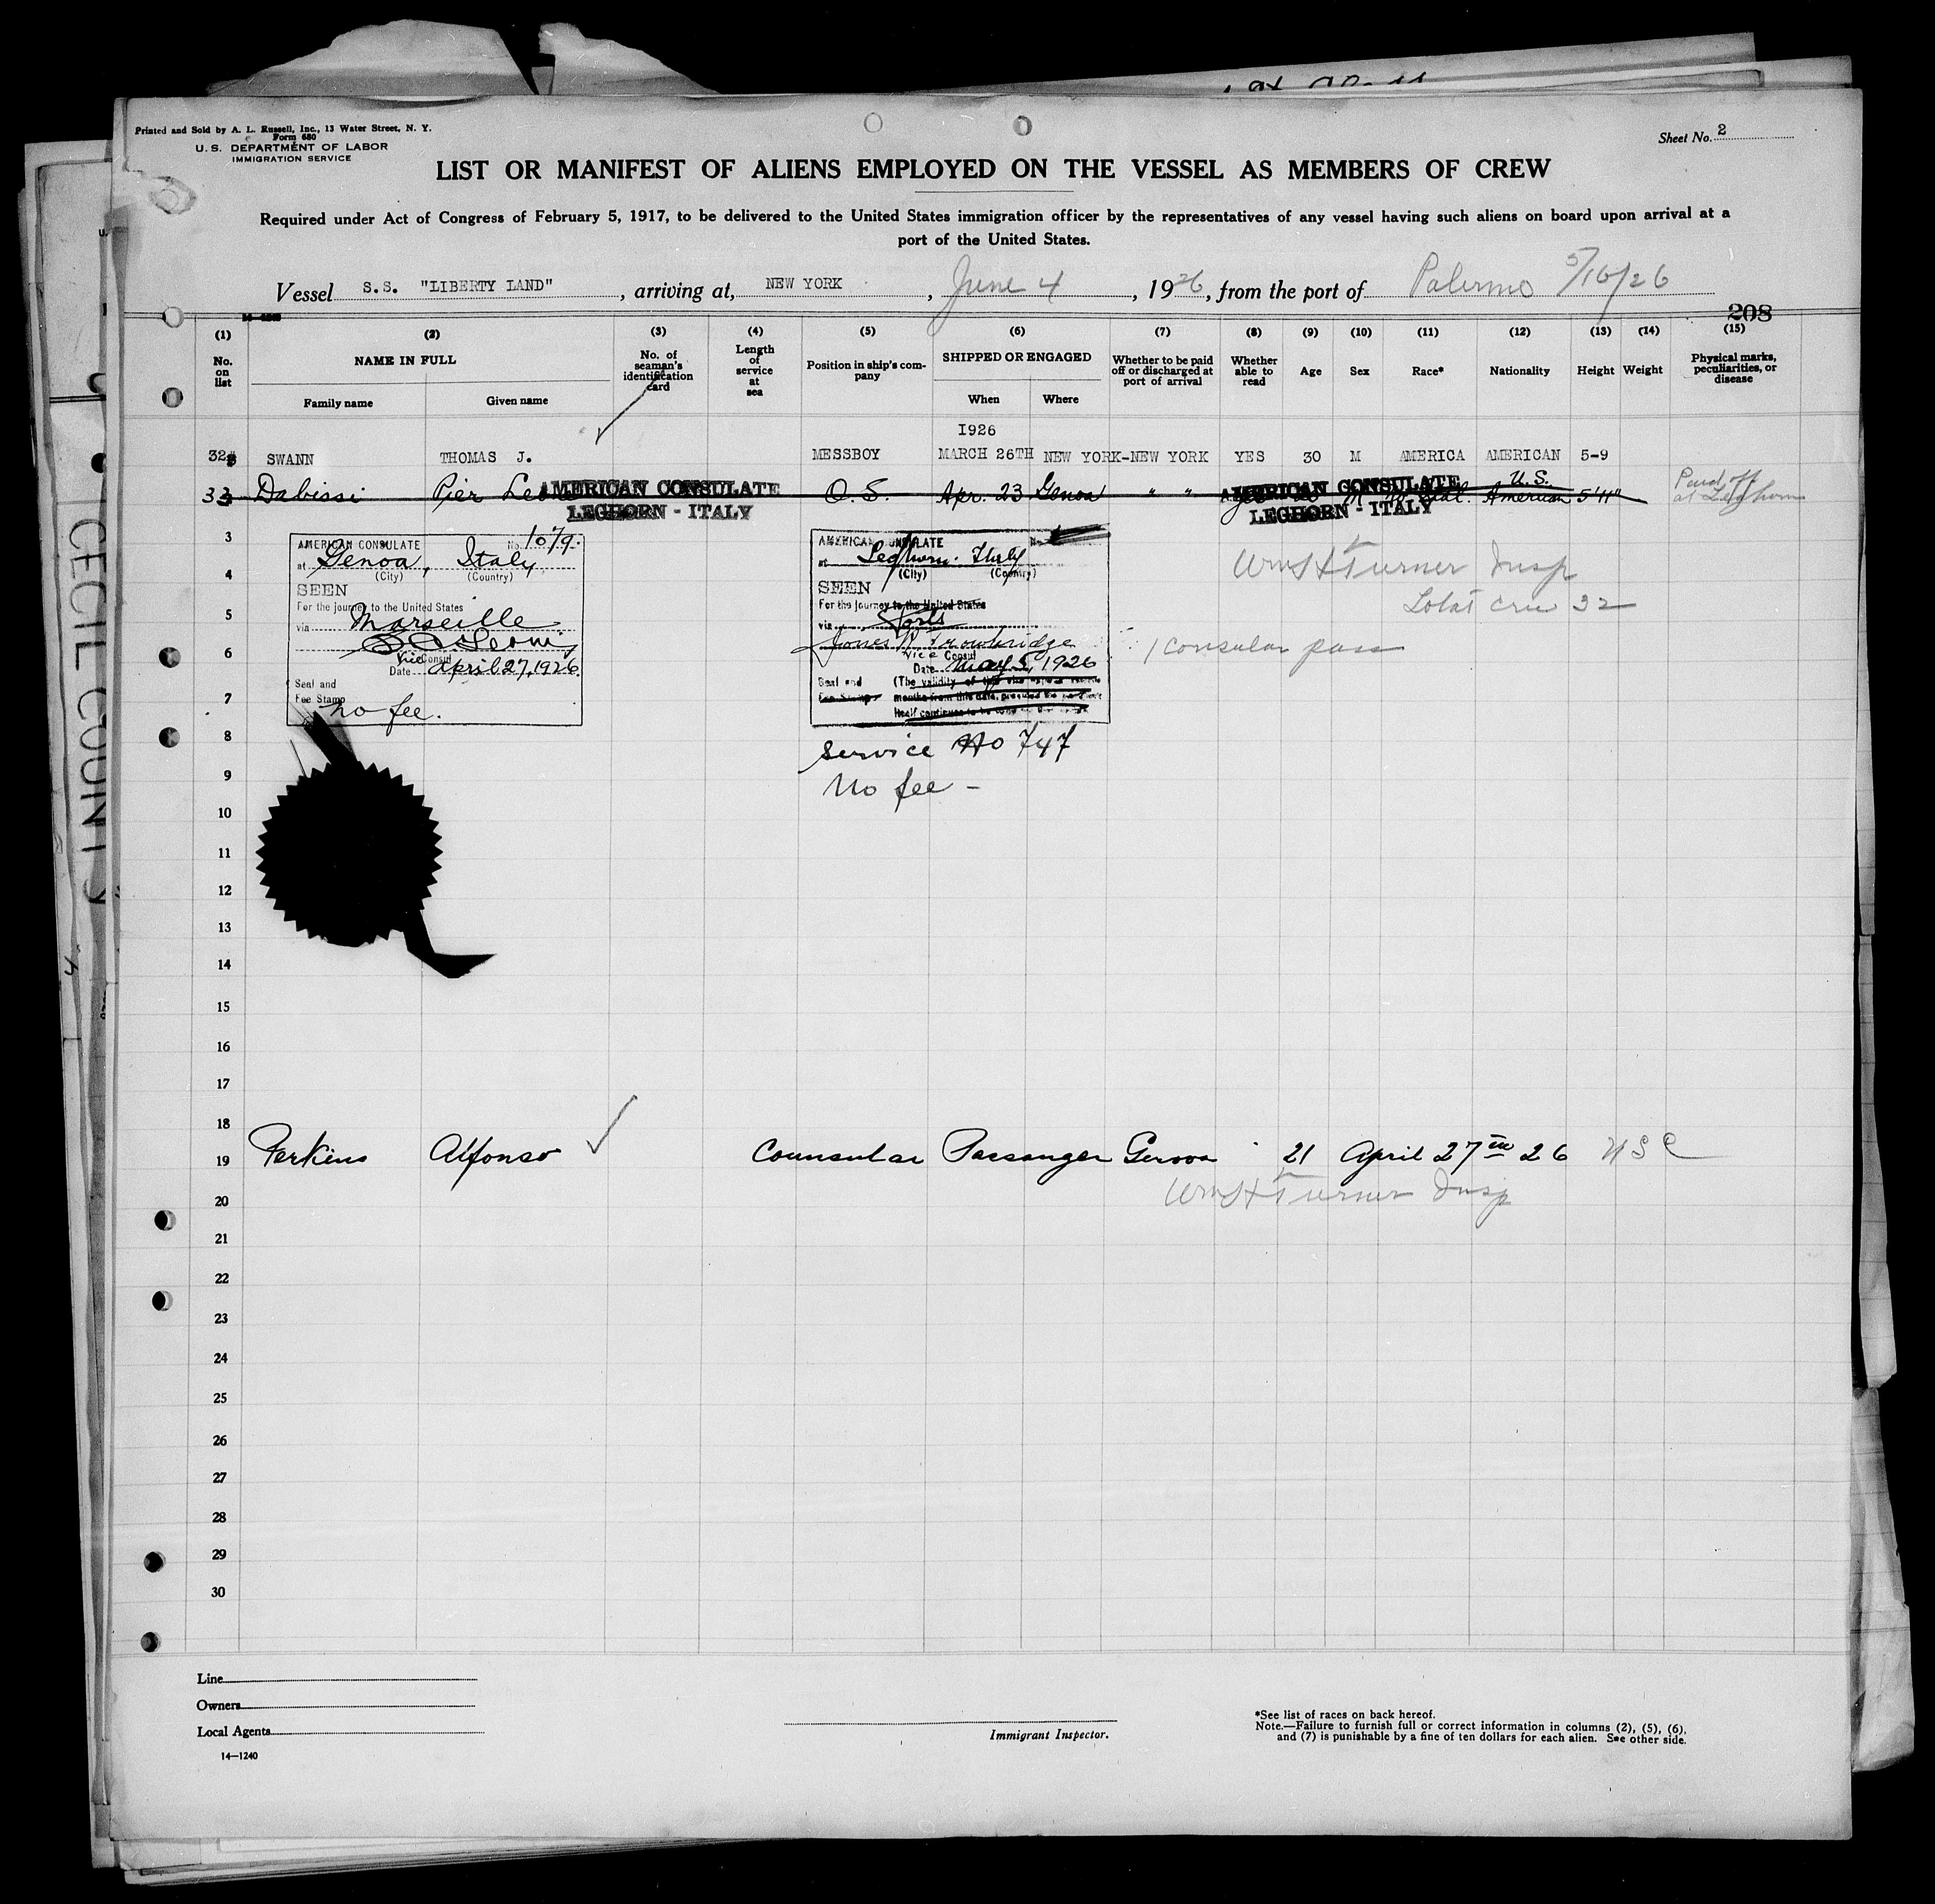 Printed and Sold by A. L. Russell, Inc., 13 Water Street, N. Y.
Form 680
U. S. DEPARTMENT OF LABOR
IMMIGRATION SERVICE
Sheet No. 2
LIST OR MANIFEST OF ALIENS EMPLOYED ON THE VESSEL AS MEMBERS OF CREW
Required under Act of Congress of February 5, 1917, to be delivered to the United States immigration officer by the representatives of any vessel having such aliens on board upon arrival at a
port of the United States.
Vessel S.S. "LIBERTY LAND", arriving at, NEW YORK, June 4, 1926, from the port of Palermo 5/16/26
208
(1) (2) (3) (4) (5) (6) (7) (8) (9) (10) (11) (12) (13) (14) (15)
No. on list
NAME IN FULL
Family name
Given name
No. of seaman's identification card
Length of service at sea
Position in ship's company
SHIPPED OR ENGAGED
When
Where
Whether to be paid off or discharged at port of arrival
Whether able to read
Age
Sex
Race*
Nationality
Height
Weight
Physical marks, peculiarities, or disease
1926
32 SWANN THOMAS J. MESSBOY MARCH 26TH NEW YORK-NEW YORK YES 30 M AMERICA AMERICAN 5-9
33 Dabissi Pier O. S. Apr. 23 Genoa " " yes M U.S. American 5'11" Paid off at Leghorn
AMERICAN CONSULATE
LEGHORN - ITALY
AMERICAN CONSULATE
LEGHORN - ITALY
AMERICAN CONSULATE No. 1079.
at Genoa, Italy
(City) (Country)
SEEN
For the journey to the United States
via Marseille
Vice Consul
Date April 27, 1926.
Seal and
Fee Stamp
No fee.
AMERICAN CONSULATE No.
at Leghorn. Italy
(City) (Country)
SEEN
For the journey to the United States
via Ports
Trowbridge
Vice Consul
Date May 5, 1926
Seal and (The validity of
Fee Stamp months from this date, provided
itself continues to be
service No 747
No fee -
Wm H Turner Insp
Total crew 32
1 consular pass
3
4
5
6
7
8
9
10
11
12
13
14
15
16
17
18
19 Perkins Alfonso Counsular Passanger Genoa 21 April 27th 26 USC
Wm H Turner Insp
20
21
22
23
24
25
26
27
28
29
30
Line
Owners
Local Agents
14—1240
Immigrant Inspector.
*See list of races on back hereof.
Note.—Failure to furnish full or correct information in columns (2), (5), (6),
and (7) is punishable by a fine of ten dollars for each alien. See other side.
CECIL COUNTY